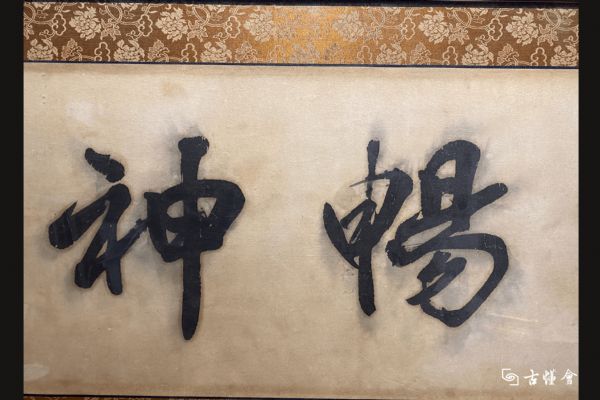 暢神
古準會